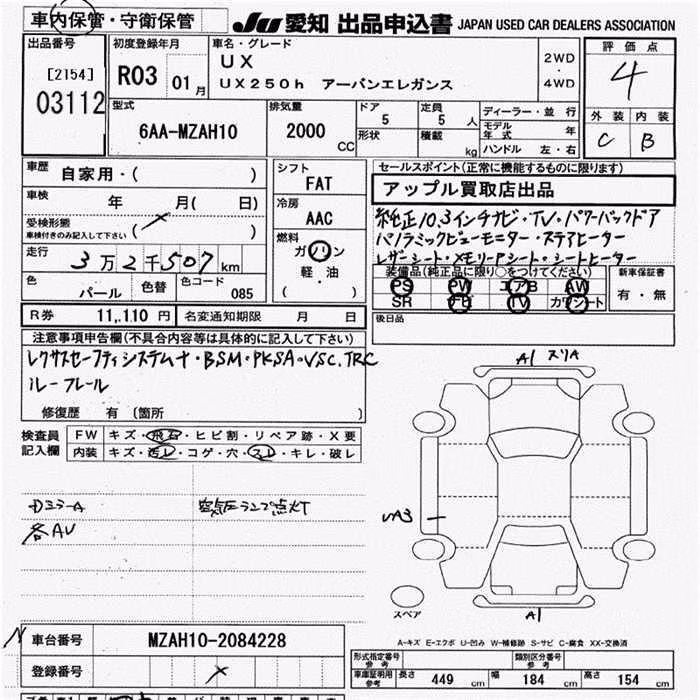 車内保管・守衛保管 JU 愛知 出品申込書 JAPAN USED CAR DEALERS ASSOCIATION
出品番号 [2154] 03112
初度登録年月 R03 01月
車名・グレード UX
UX250h アーバンエレガンス
2WD・4WD
評価点 4
外装 内装
C B
型式 6AA-MZAH10
排気量 2000 CC
ドア 5 形状
定員 5 人 積載 kg
ディーラー・並行
モデル年式 年
ハンドル 左・右
車歴 自家用・( )
車検 年 月( 日)
受検形態 ・( )
車検付きのみ記入して下さい
走行 3万2千507km
色 パール 色替 色コード 085
シフト FAT
冷房 AAC
燃料 ガソリン
軽・油
( )
セールスポイント(正常に機能するものに限ります)
アップル買取店出品
純正10.3インチナビ・TV・パワーバックドア
パノラミックビューモニター・ステアヒーター
レザーシート・メモリーPシート・シートヒーター
装備品(純正品に限り○をつけてください)
PS PW エアB AW
SR TV カワシート
新車保証書
有・無
後日品
R券 11,110 円 名変通知期限 月 日
注意事項申告欄(不具合内容等は具体的に記入して下さい)
レクサスセーフティシステム+・BSM・PKSA・VSC.TRC
ルーフレール
修復歴 有 (箇所 )
検査員記入欄
FW キズ・飛石・ヒビ割・リペア跡・X要
内装 キズ・汚レ・コゲ・穴・スレ・キレ・破レ
DミラーA 空気圧ランプ点灯
各AU
A1 スリA
UA3
スペア
A1
A-キズ E-エクボ U-凹み W-補修跡 S-サビ C-腐食 XX-交換済
N 車台番号 MZAH10-2084228
登録番号
形式指定番号 参考
類別区分番号 参考
車庫証明用 参考 長さ 449 cm 幅 184 cm 高さ 154 cm